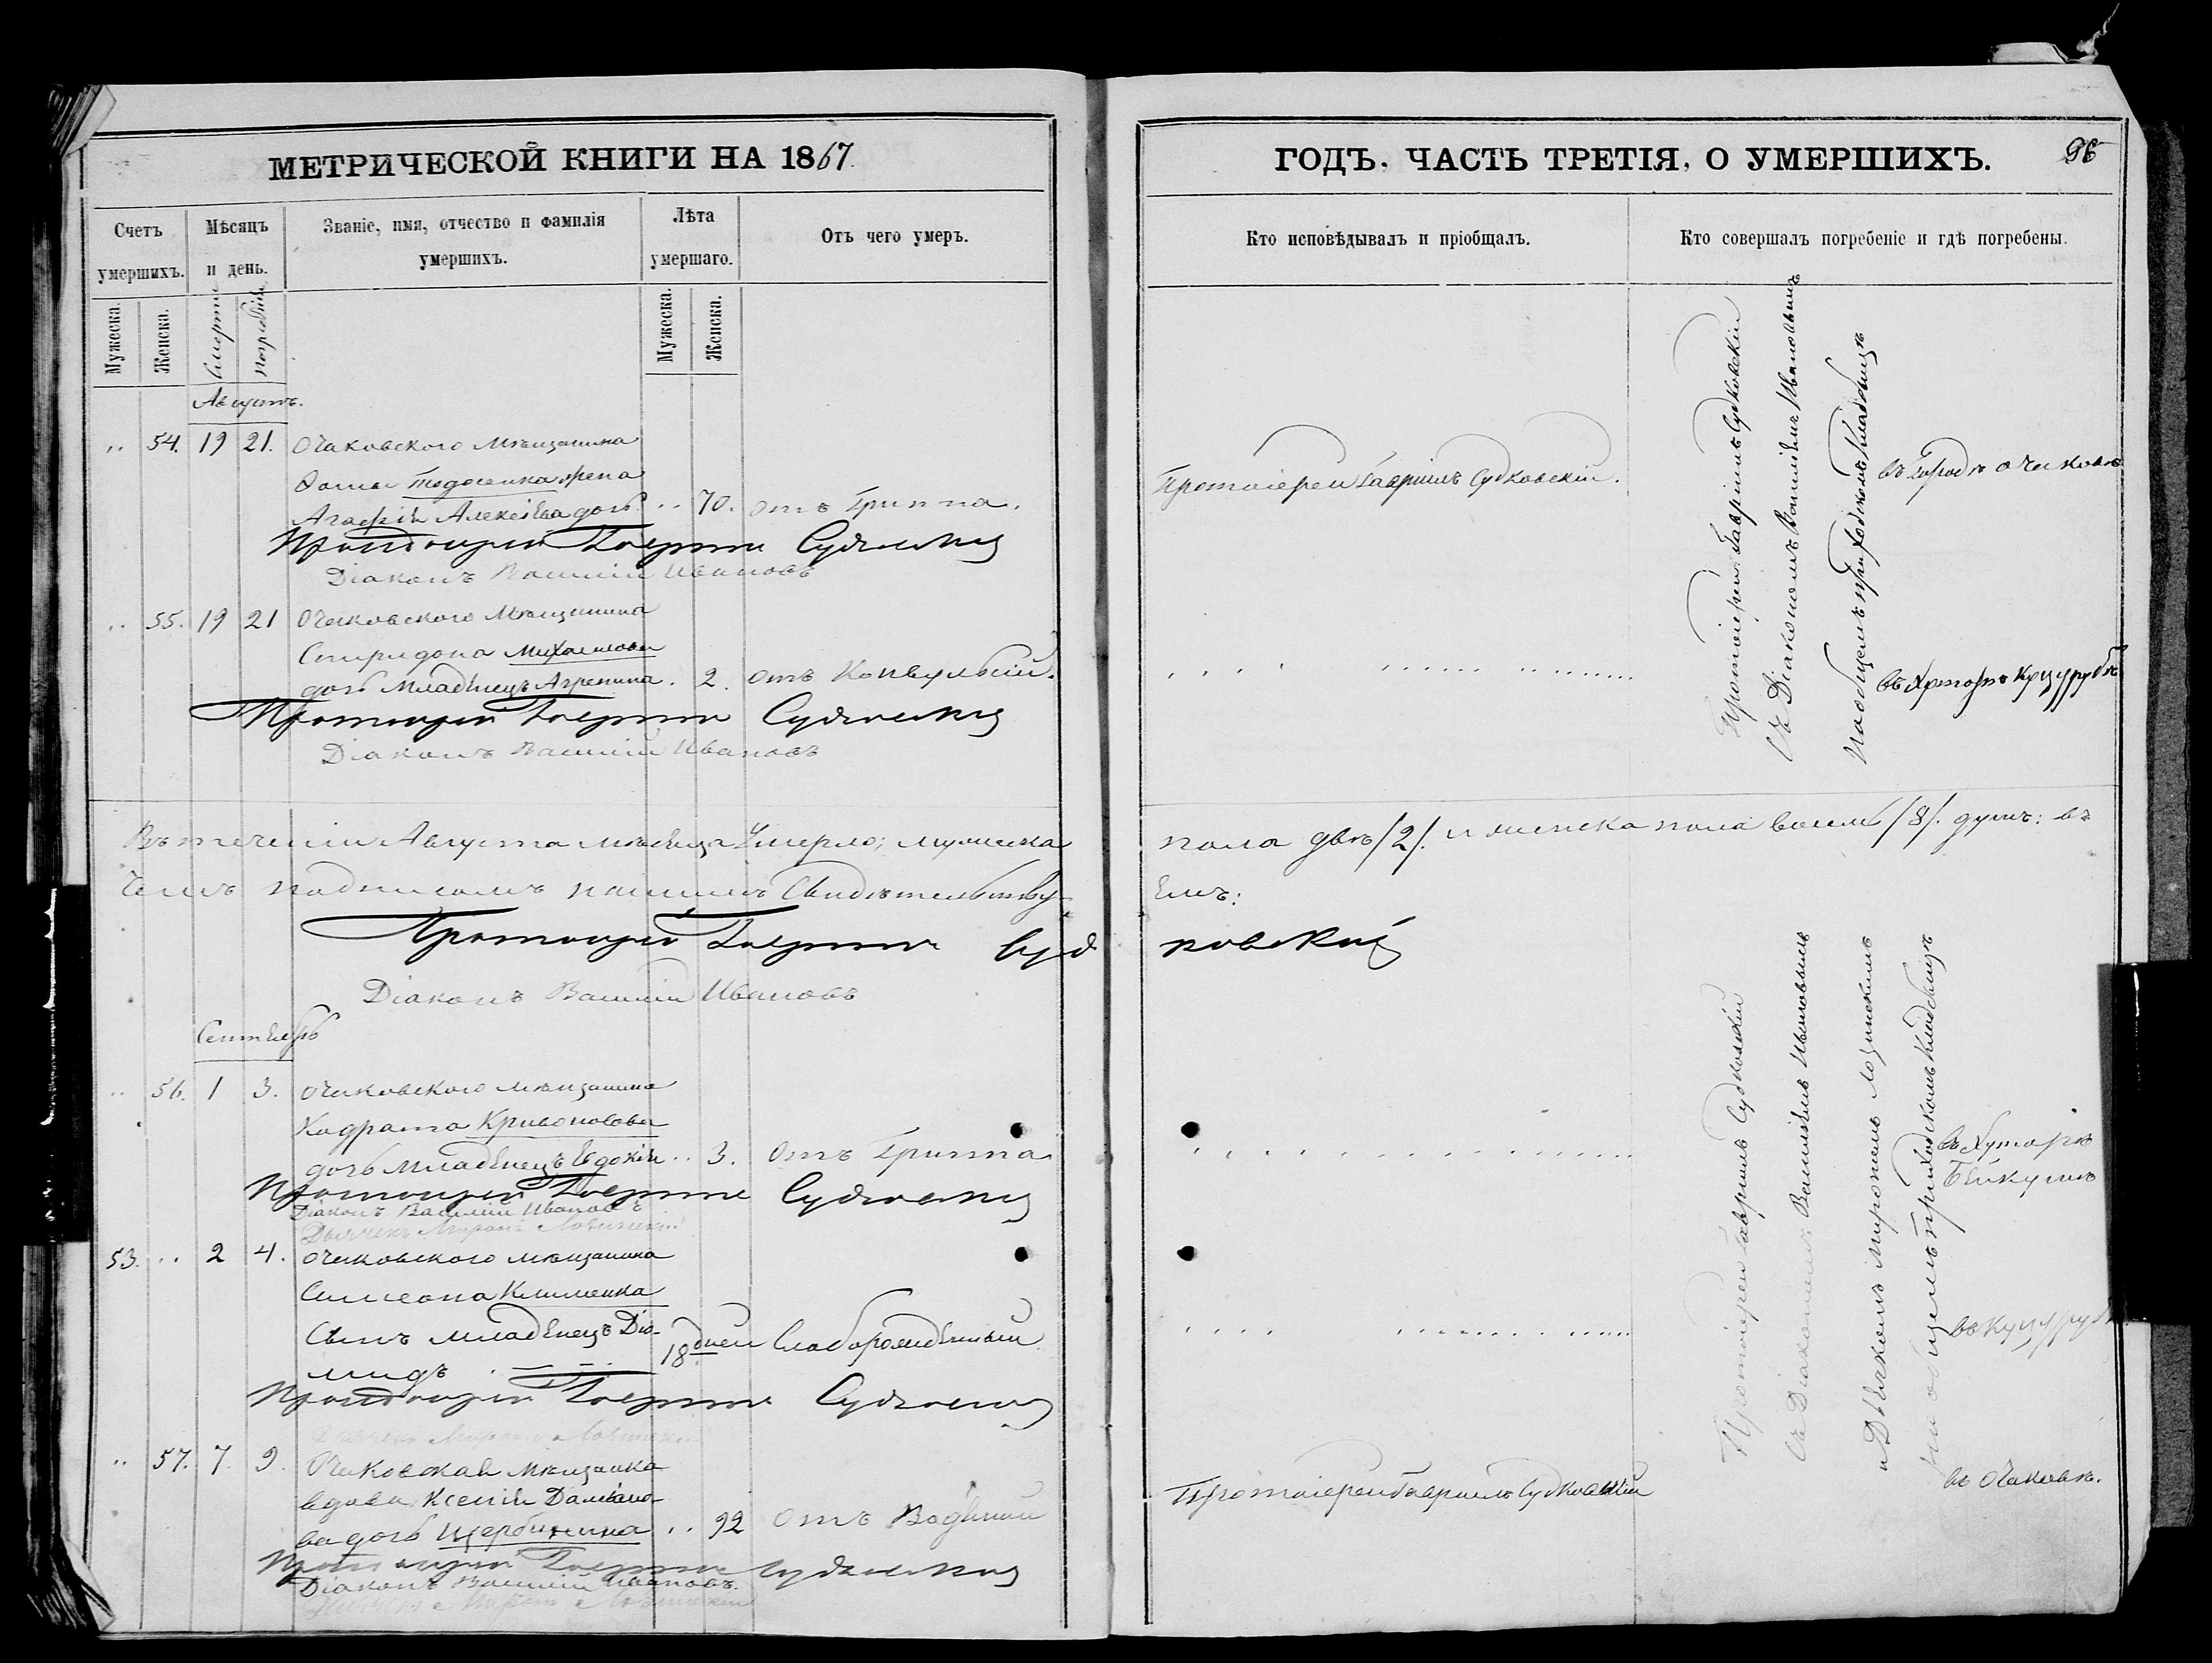 МЕТРИЧЕСКОЙ КНИГИ НА 1867.
Счетъ умершихъ.
Мѣсяцъ и день.
Званіе, имя, отчество и фамилія умершихъ.
Лѣта умершаго.
Отъ чего умеръ.
Мужеска.
Женска.
Смерти
погребенія
Мужеска.
Женска.
Августъ.
.. 54. 19 21. Очаковскаго Мѣщанина
Фомы Тодосенка жена
Агафія Алексѣева дочь .. 70. отъ Гриппа.
Протоіерей Гавріилъ Судковскій
Діаконъ Василій Ивановъ
.. 55. 19 21 Очаковскаго Мѣщанина
Спиридона Михайлова
дочь Младѣнецъ Агрепина . 2. отъ Конвульсій.
Протоіерей Гавріилъ Судковскій
Діаконъ Василій Ивановъ
Въ теченіи Августа мѣсяца Умерло; мужеска
Чемъ подписомъ нашимъ Свидѣтельству-
Протоіерей Гавріилъ Суд
Діаконъ Василій Ивановъ
Сентябрь
.. 56. 1 3. Очаковскаго мѣщанина
Кодрата Кривоносова
дочь Младѣнецъ Евдокія .. 3. Отъ Гриппа
Протоіерей Гавріилъ Судковскій
Діаконъ Василій Ивановъ
Дьячекъ Миронъ Лозинскій
53. .. 2 4. Очаковскаго мѣщанина
Симеона Клименка
Сынъ младѣнецъ Діо-
мидъ 18 дней Слаборожденный.
Протоіерей Гавріилъ Судковскій
Дьячекъ Миронъ Лозинскій
.. 57. 7. 9. Очаковская мѣщанка
вдова Ксенія Даміано-
ва дочь Щербинина .. 92 Отъ Водяной
Протоіерей Гавріилъ Судковскій
Діаконъ Василій Ивановъ.
Дьячекъ Миронъ Лозинскій
ГОДЪ. ЧАСТЬ ТРЕТІЯ, О УМЕРШИХЪ.
96
Кто исповѣдывалъ и пріобщалъ.
Кто совершалъ погребеніе и гдѣ погребены.
Протоіерей Гавріилъ Судковскій.
Протоіерей Гавріилъ Судковскій
Съ Діакономъ Василіемъ Ивановымъ
На общемъ приходскомъ Кладбищѣ
въ Городѣ Очаковѣ
въ Хуторѣ Куцурубѣ
пола двѣ /2/. и женска пола восемь /8/. душъ: въ
емъ:
ковскій
Протоіерей Гавріилъ Судковскій
съ Діакономъ Василіемъ Ивановымъ
и Дьячкомъ Мирономъ Лозинскимъ
На общемъ приходскомъ Кладбищѣ
въ Хуторѣ
Бейкушѣ
въ Куцурубѣ
Протоіерей Гавріилъ Судковскій
въ Очаковѣ.